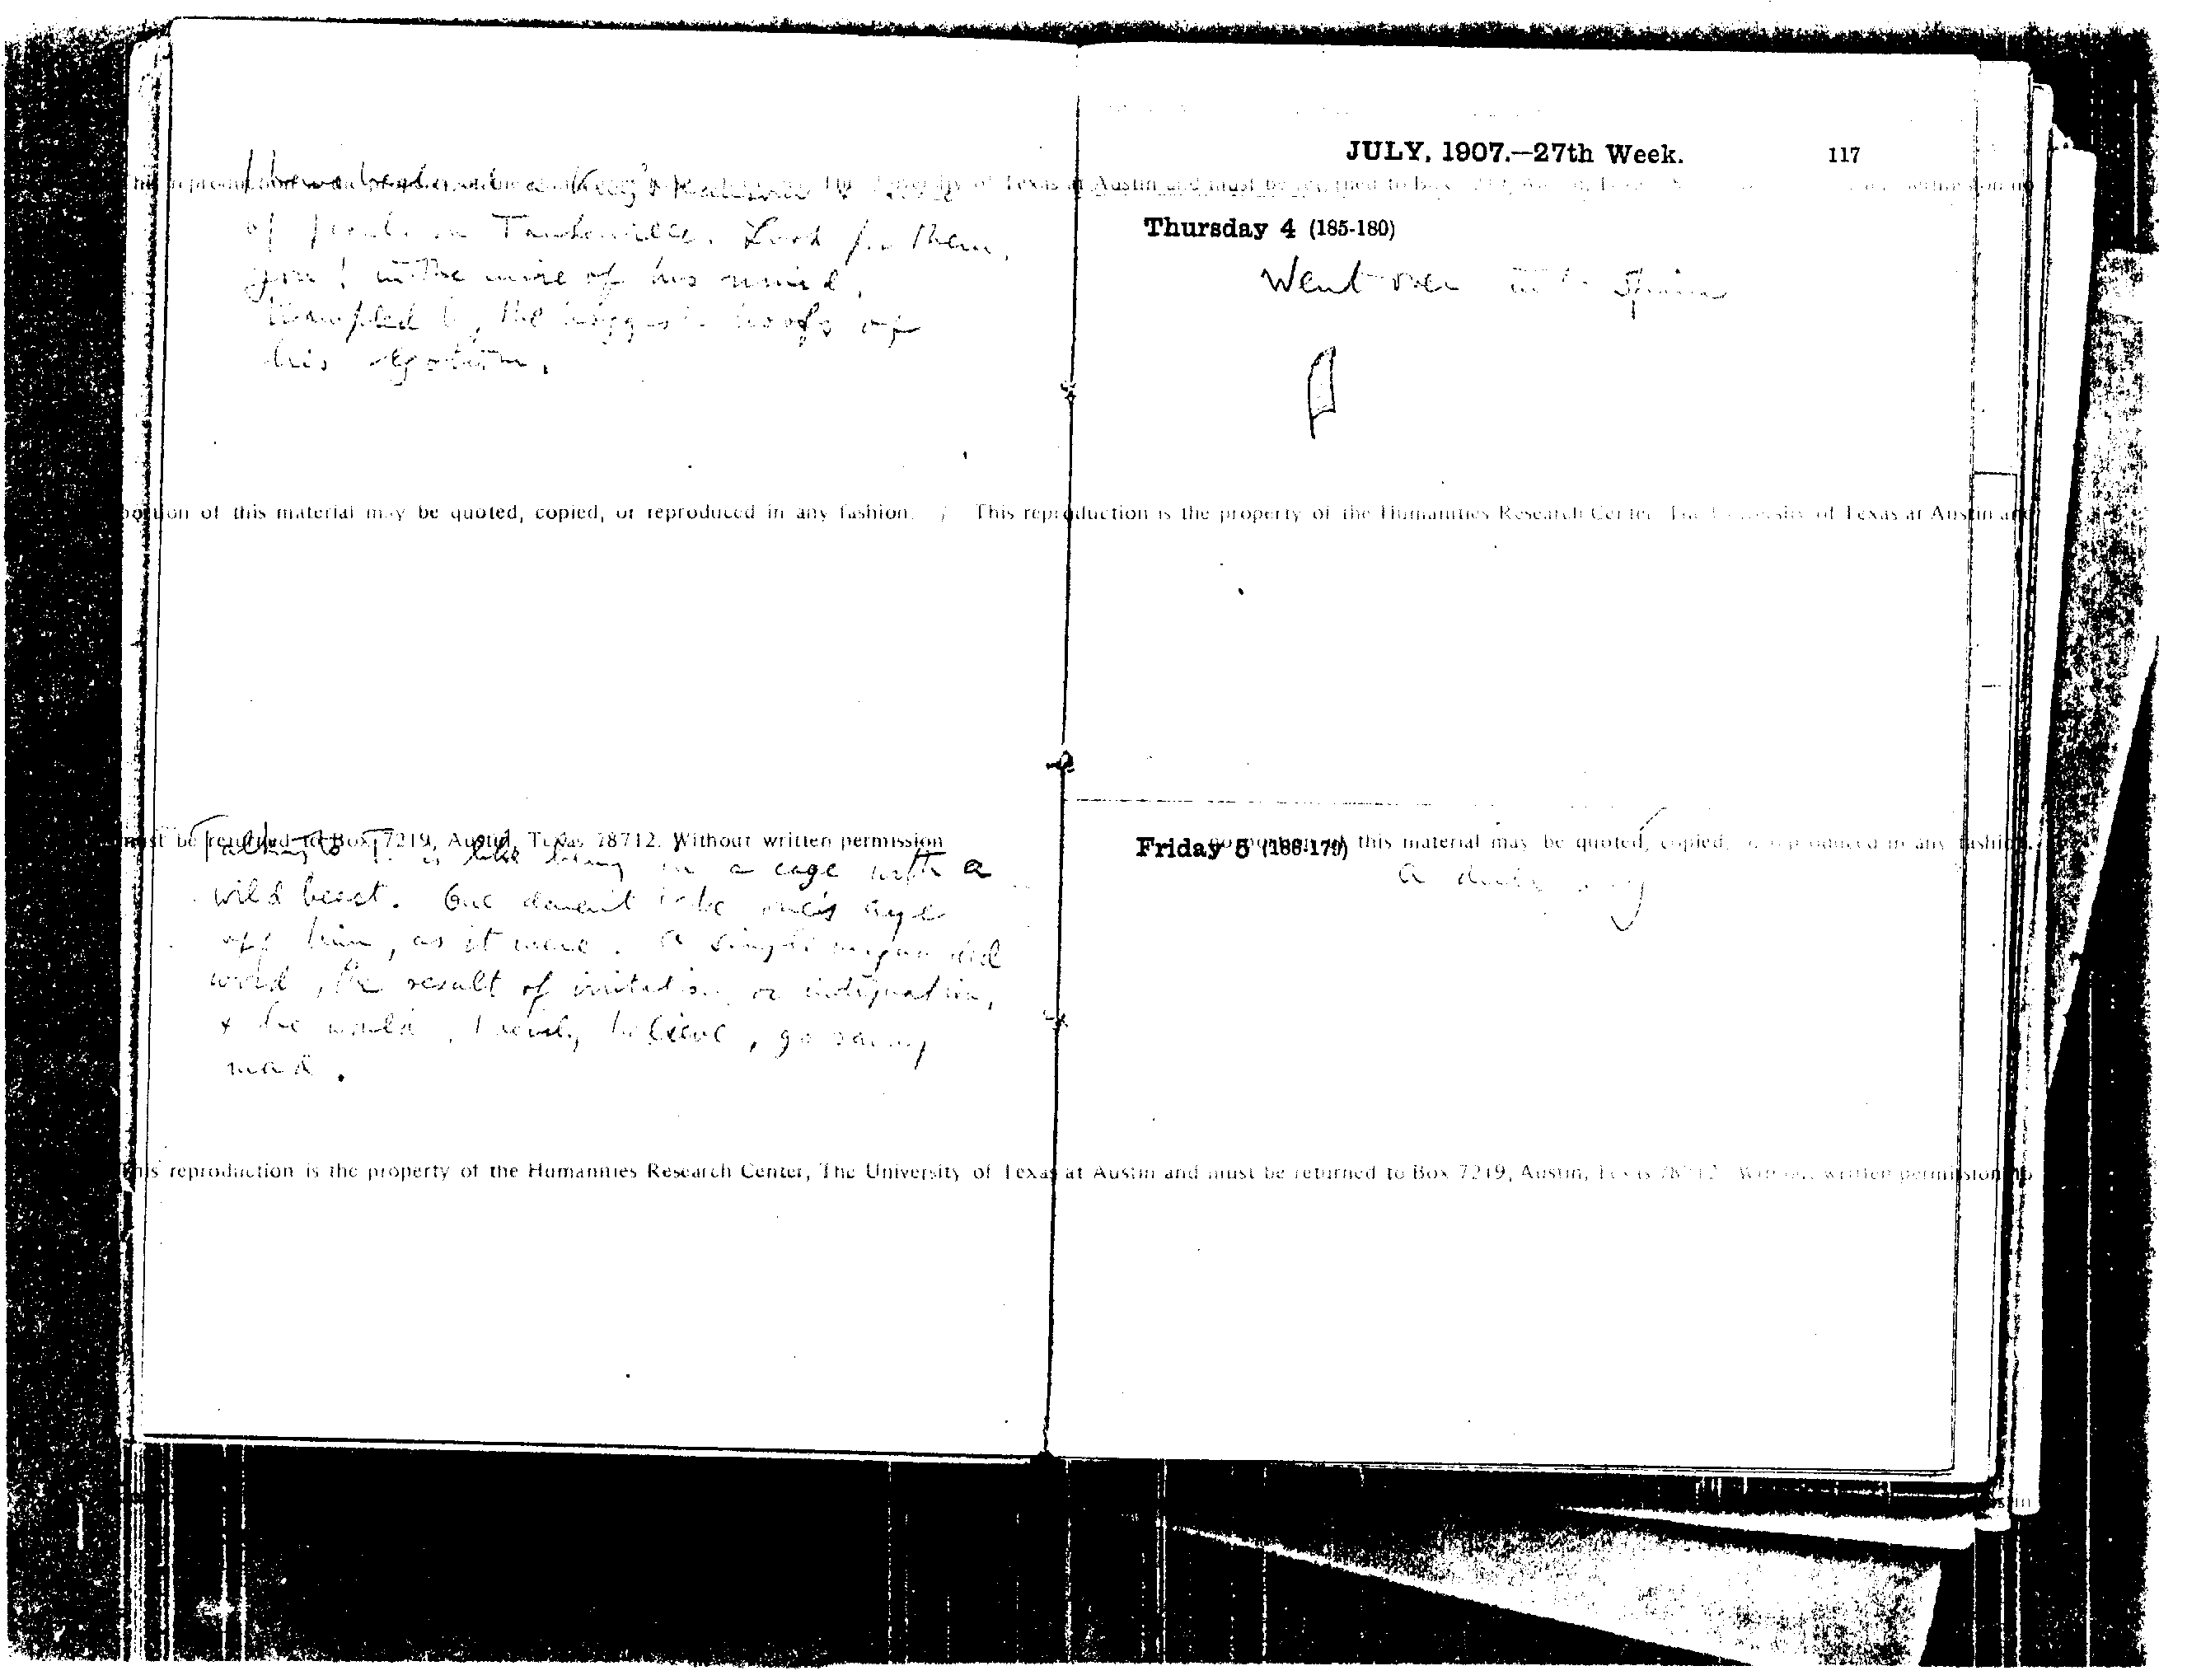 of pearls in
you! in the mire of his mind,
trampled by the biggest hoofs of
his egotism.
portion of this material may be quoted, copied, or reproduced in any fashion.
must be returned to Box 7219, Austin, Texas 78712. Without written permission
Talking to T. is like being in a cage with a
wild beast. One daren't take one's eye
off him, as it were. A single unguarded
word, the result of irritation or indignation,
& he would, I verily believe, go raving
mad.
This reproduction is the property of the Humanities Research Center, The University of Texas at Austin and must be returned to Box 7219, Austin, Texas 78712. Without written permission no
JULY, 1907.—27th Week. 117
Thursday 4 (185-180)
Went over into Spain
This reproduction is the property of the Humanities Research Center, The University of Texas at Austin and
Friday 5 (186-179)
this material may be quoted, copied, or reproduced in any fashion.